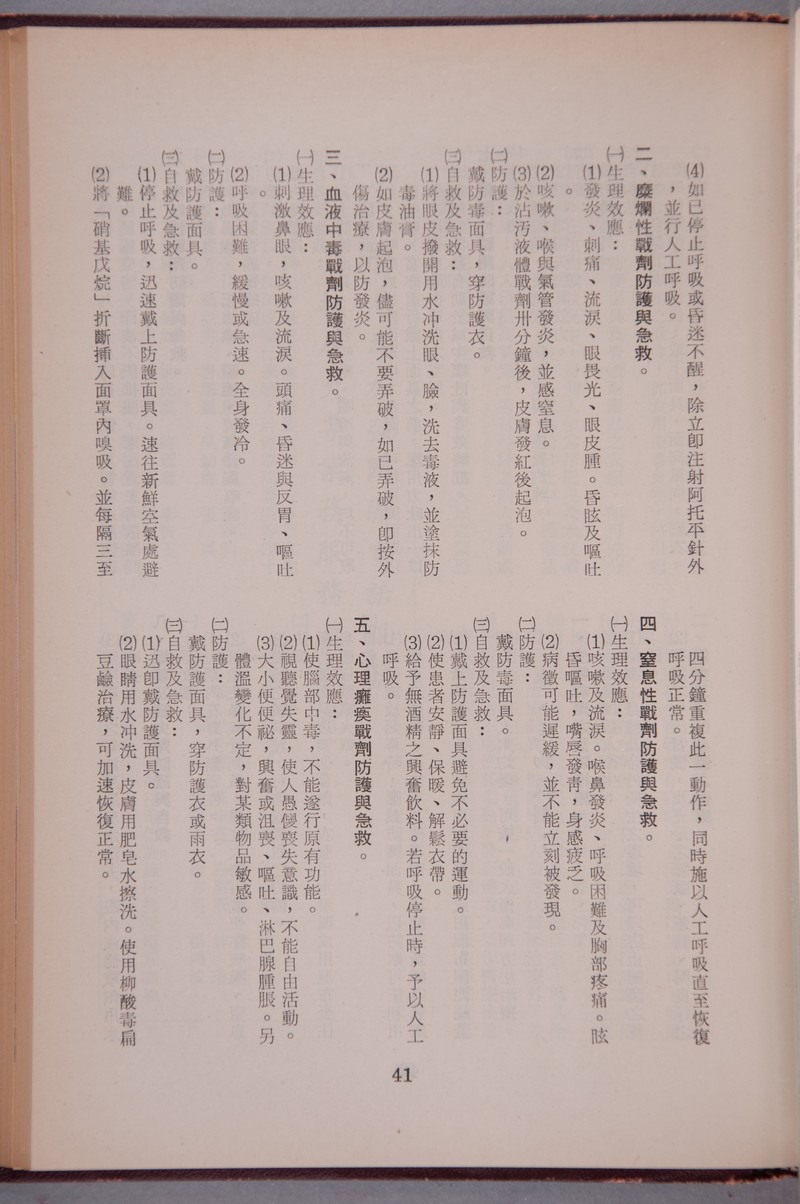 (4)如已停止呼吸或昏迷不醒，除立卽注射阿托平針外
，並行人工呼吸。
二、糜爛性戰劑防護與急救。
㈠生理效應：
(1)發炎、刺痛、流淚、眼畏光、眼皮腫。昏眩及嘔吐
。
(2)咳嗽、喉與氣管發炎，並感窒息。
(3)於沾汚液體戰劑卅分鐘後，皮膚發紅後起泡。
㈡防護：
戴防毒面具，穿防護衣。
㈢自救及急救：
(1)將眼皮撥開用水冲洗眼、臉，洗去毒液，並塗抹防
毒油膏。
(2)如皮膚起泡，儘可能不要弄破，如已弄破，卽按外
傷治療，以防發炎。
三、血液中毒戰劑防護與急救。
㈠生理效應：
(1)刺激鼻眼，咳嗽及流淚。頭痛、昏迷與反胃、嘔吐
。
(2)呼吸困難，緩慢或急速。全身發冷。
㈡防護：
戴防護面具。
㈢自救及急救：
(1)停止呼吸，迅速戴上防護面具。速往新鮮空氣處避
難。
(2)將「硝基戊烷」折斷揷入面罩內嗅吸。並每隔三至
四分鐘重複此一動作，同時施以人工呼吸直至恢復
呼吸正常。
四、窒息性戰劑防護與急救。
㈠生理效應：
(1)咳嗽及流淚。喉鼻發炎、呼吸困難及胸部疼痛。眩
昏嘔吐，嘴唇發靑，身感疲乏。
(2)病徵可能遲緩，並不能立刻被發現。
㈡防護：
戴防毒面具。
㈢自救及急救：
(1)戴上防護面具避免不必要的運動。
(2)使患者安靜、保暖、解鬆衣帶。
(3)給予無酒精之興奮飲料。若呼吸停止時，予以人工
呼吸。
五、心理癱瘓戰劑防護與急救。
㈠生理效應：
(1)使腦部中毒，不能遂行原有功能。
(2)視聽覺失靈，使人愚儍喪失意識，不能自由活動。
(3)大小便便祕，興奮或沮喪、嘔吐、淋巴腺腫脹。另
體溫變化不定，對某類物品敏感。
㈡防護：
戴防護面具，穿防護衣或雨衣。
㈢自救及急救：
(1)迅卽戴防護面具。
(2)眼睛用水冲洗，皮膚用肥皂水擦洗。使用柳酸毒扁
豆鹼治療，可加速恢復正常。
41